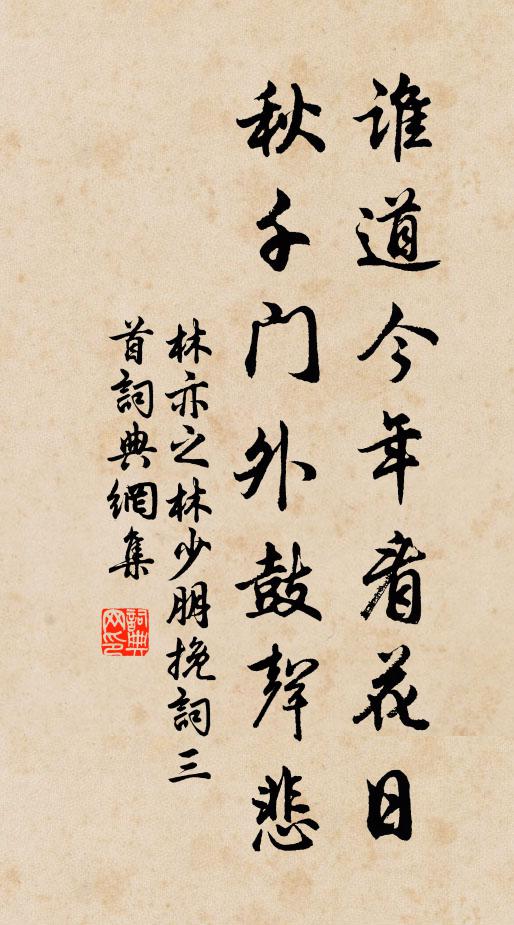 誰道今年看花日
秋千門外鼓聲悲
林亦之林少朋挽詞三
首詞典網集
詞典网印